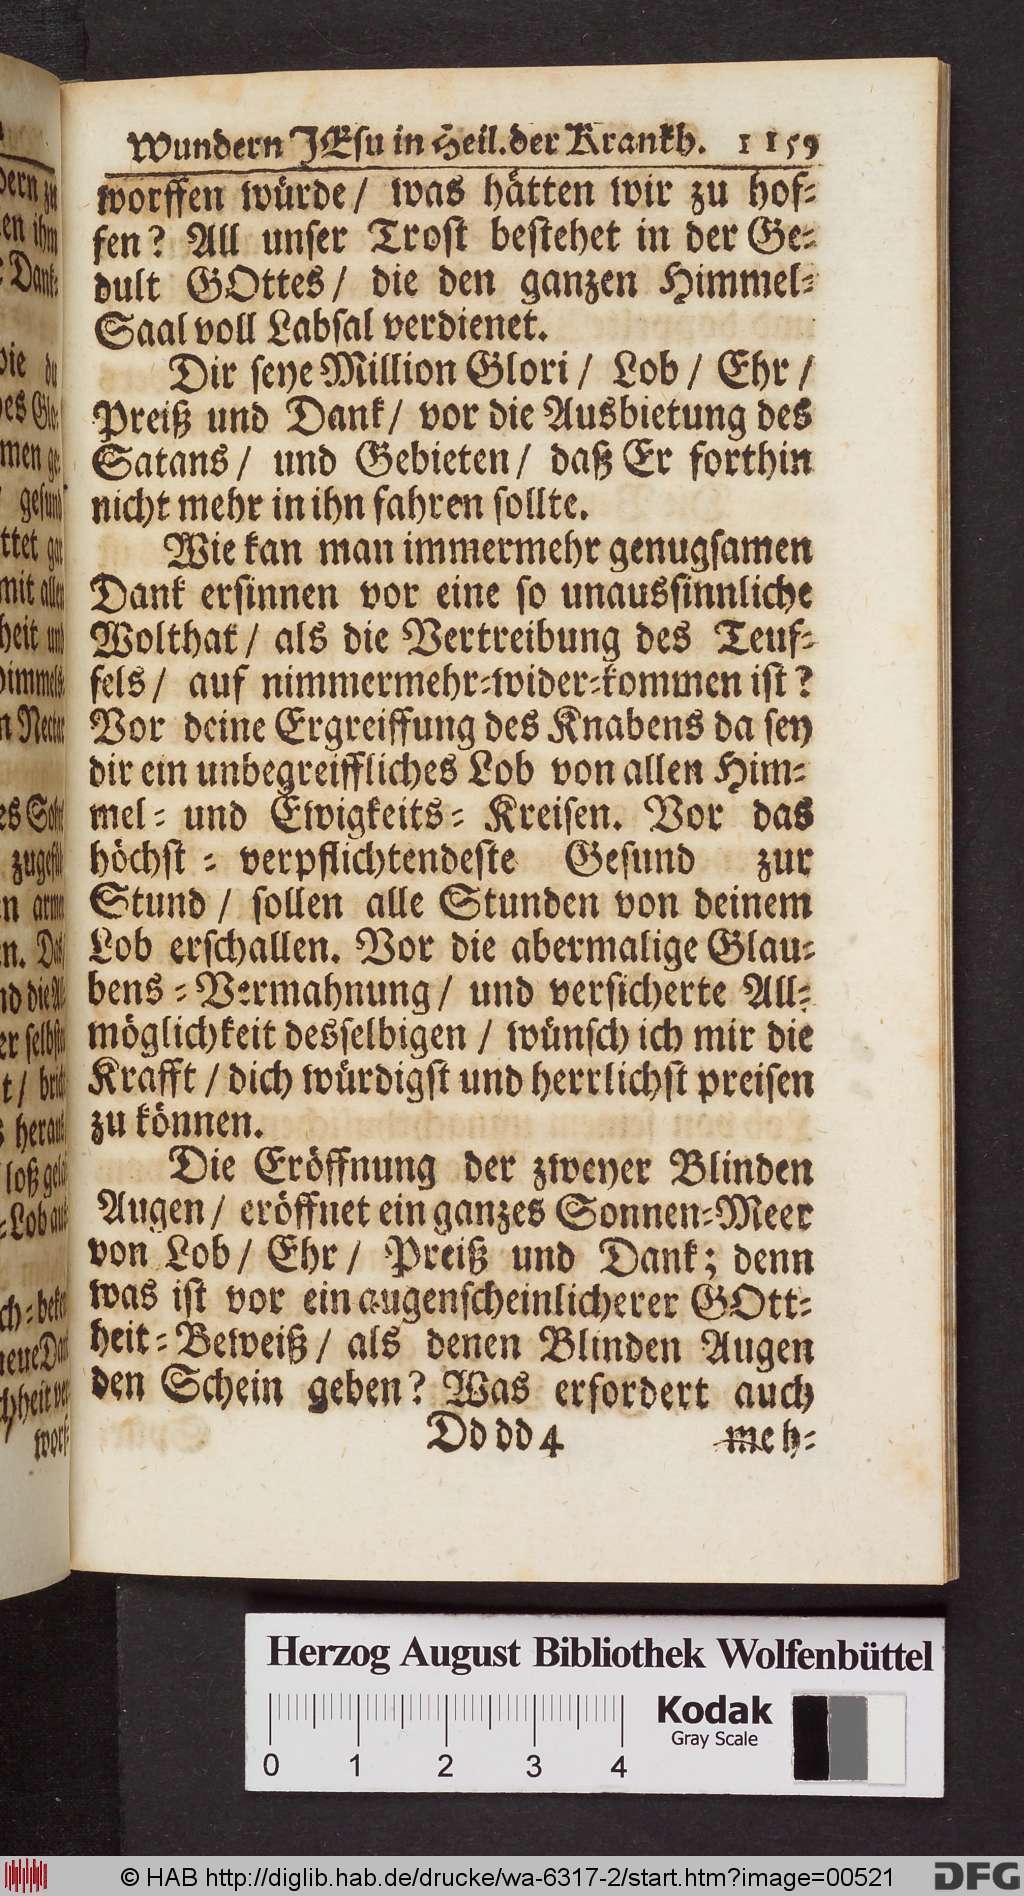 Wundern JEsu in Heil. der Krankh. 1159
worffen würde / was hätten wir zu hof-
fen? All unser Trost bestehet in der Ge-
dult GOttes / die den ganzen Himmel-
Saal voll Labsal verdienet.
Dir seye Million Glori / Lob / Ehr /
Preiß und Dank / vor die Ausbietung des
Satans / und Gebieten / daß Er forthin
nicht mehr in ihn fahren sollte.
Wie kan man immermehr genugsamen
Dank ersinnen vor eine so unaussinnliche
Wolthat / als die Vertreibung des Teuf-
fels / auf nimmermehr-wider-kommen ist?
Vor deine Ergreiffung des Knabens da sey
dir ein unbegreiffliches Lob von allen Him-
mel- und Ewigkeits- Kreisen. Vor das
höchst - verpflichtendeste Gesund zur
Stund / sollen alle Stunden von deinem
Lob erschallen. Vor die abermalige Glau-
bens - Vermahnung / und versicherte All-
möglichkeit desselbigen / wünsch ich mir die
Krafft / dich würdigst und herrlichst preisen
zu können.
Die Eröffnung der zweyer Blinden
Augen / eröffnet ein ganzes Sonnen-Meer
von Lob / Ehr / Preiß und Dank; denn
was ist vor ein augenscheinlicherer GOtt-
heit- Beweiß / als denen Blinden Augen
den Schein geben? Was erfordert auch
Dd dd 4 meh-
Herzog August Bibliothek Wolfenbüttel
Kodak
Gray Scale
0 1 2 3 4
© HAB http://diglib.hab.de/drucke/wa-6317-2/start.htm?image=00521
DFG